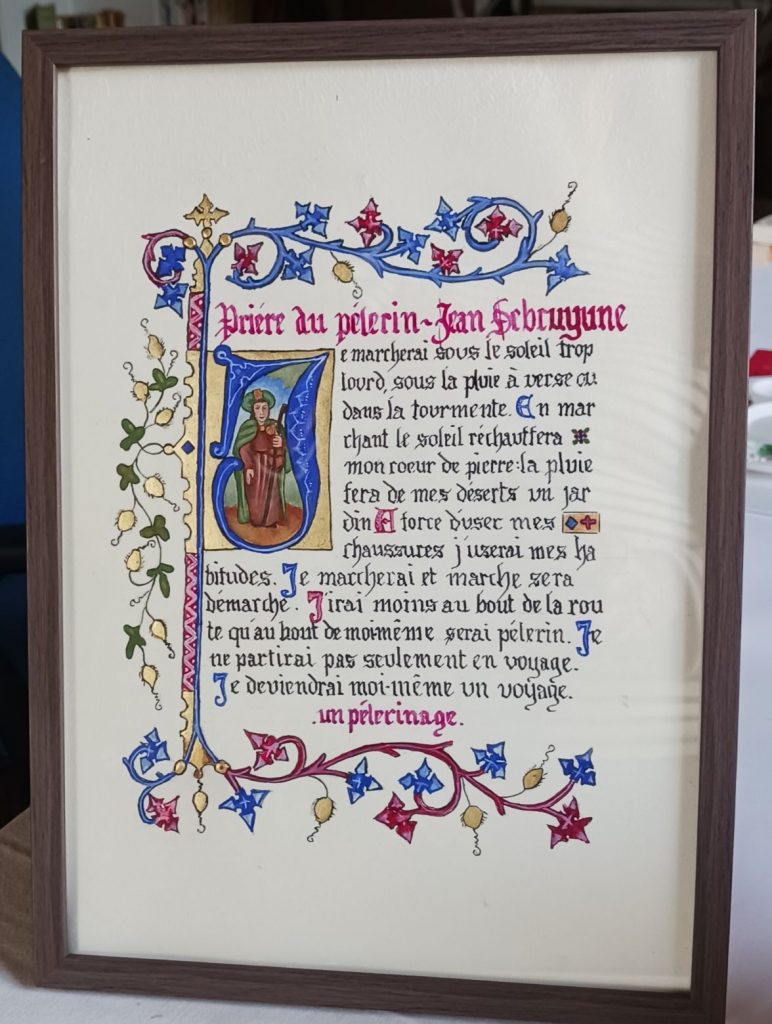 Priére du pélerin~Jean Debruyune
Je marcherai sous le soleil trop
lourd, sous la pluie à verse ou
dans la tourmente. En mar
chant le soleil réchauffera
mon coeur de pierre: la pluie
fera de mes déserts un jar
din A force d'user mes
chaussures j'userai mes ha
bitudes. Je marcherai et marche sera
démarche. J'irai moins au bout de la rou
te qu'au bout de moi-même serai pélerin. Je
ne partirai pas seulement en voyage.
Je deviendrai moi-même un voyage.
. un pélerinage.